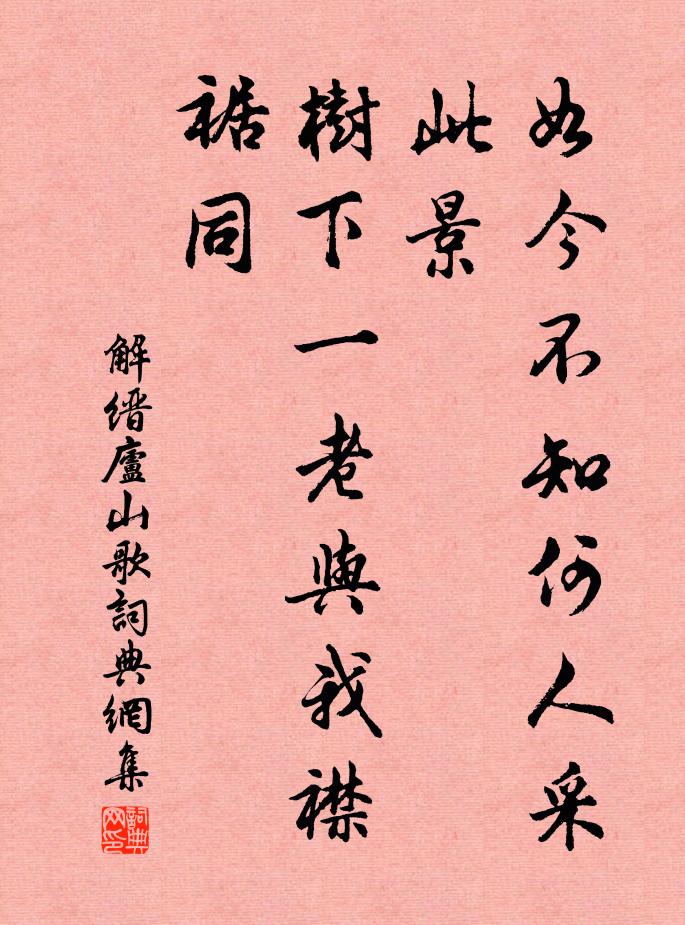 如今不知何人采
此景
樹下一老與我襟
裾同
解缙廬山歌詞典網集
詞典网印